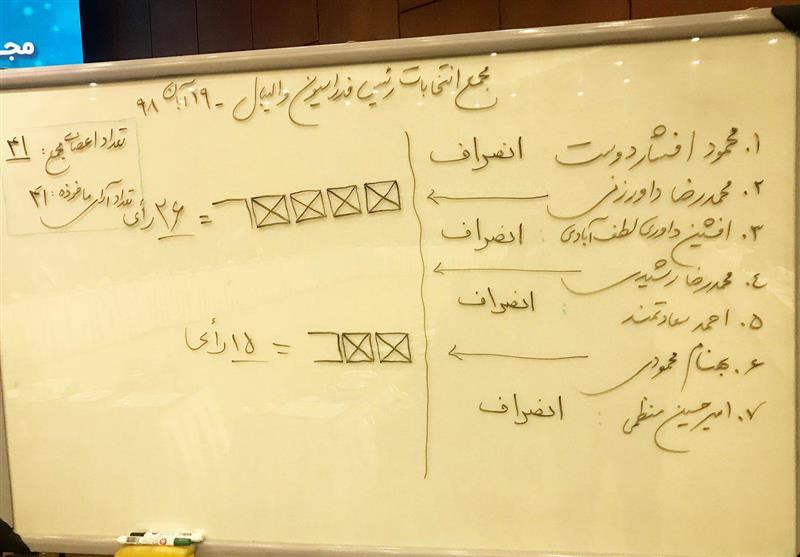 مجـ
مجمع انتخابات رئیس فدراسیون والیبال - ۲۹ آبان ۹۸
تعداد اعضای مجمع: ۴۱
تعداد آرای ماخوذه: ۴۱
۱. محمود افشاردوست انصراف
۲. محمدرضا داورزنی
= ۲۶ رأی
۳. افشین داوری لطف آبادی: انصراف
۴. محمدرضا رشیدی
۵. احمد سعادتمند انصراف
۶. بهنام محمودی
= ۱۵ رأی
۷. امیرحسین منظمی: انصراف